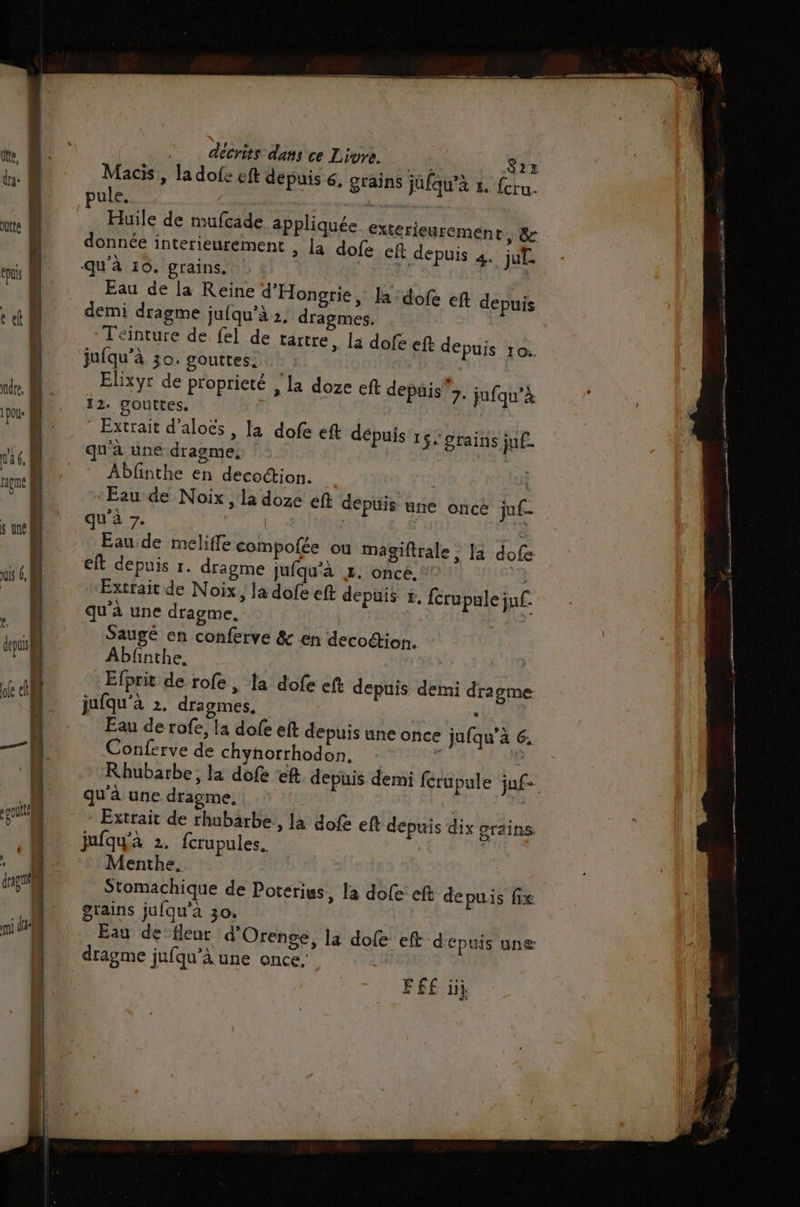 décrits dans ce Livre. 821
Macis, la dose est depuis 6. grains jusqu'à 1. scru-
pule.
Huile de muscade appliquée exterieurement, &
donnée interieurement, la dose est depuis 4. jus-
qu'à 10. grains.
Eau de la Reine d'Hongrie, la dose est depuis
demi dragme jusqu'à 2. dragmes.
Teinture de sel de tartre, la dose est depuis 10.
jusqu'à 30. gouttes.
Elixyr de proprieté, la doze est depuis 7. jusqu'à
12. gouttes.
Extrait d'aloës, la dose est depuis 15. grains jus-
qu'à une dragme.
Absinthe en decoction.
Eau de Noix, la doze est depuis une once jus-
qu'à 7.
Eau de melisse composée ou magistrale, la dose
est depuis 1. dragme jusqu'à 1. once.
Extrait de Noix, la dose est depuis 1. scrupule jus-
qu'à une dragme.
Saugé en conserve & en decoction.
Absinthe.
Esprit de rose, la dose est depuis demi dragme
jusqu'à 2. dragmes.
Eau de rose, la dose est depuis une once jusqu'à 6.
Conserve de chynorrhodon.
Rhubarbe, la dose est depuis demi scrupule jus-
qu'à une dragme.
Extrait de rhubarbe, la dose est depuis dix grains
jusqu'à 2. scrupules.
Menthe.
Stomachique de Poterius, la dose est depuis six
grains jusqu'à 30.
Eau de fleur d'Orenge, la dose est depuis une
dragme jusqu'à une once.
Fff iij